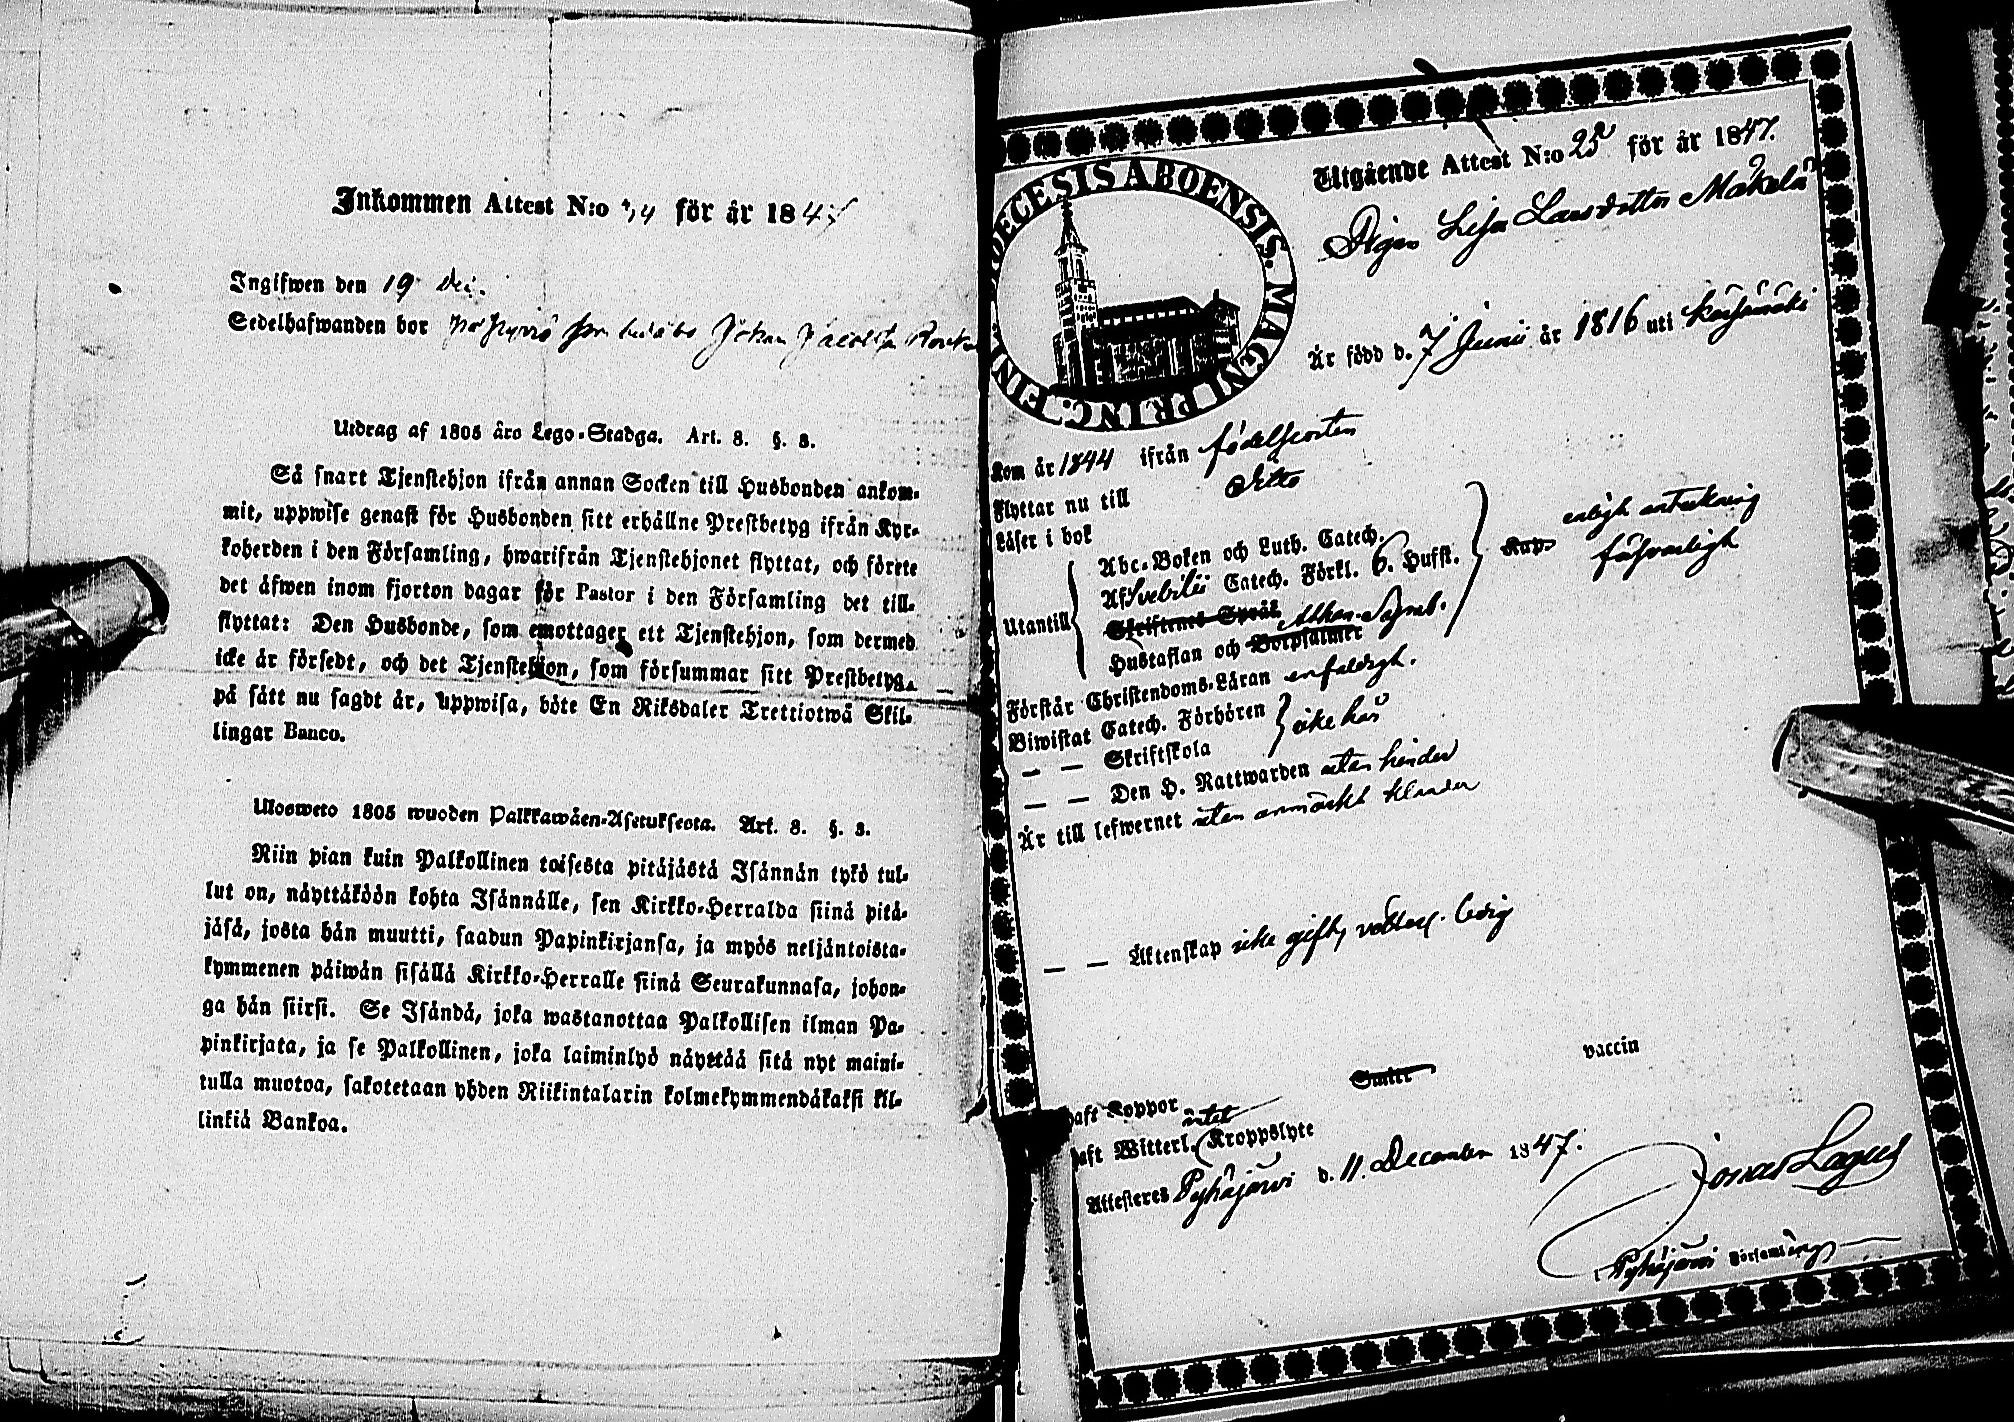 Inkommen Attest N:o för år 1847
Ingifwen den 19 Dec.
Sedelhafwanden bor Johan Jacobss
Utdrag af 1805 års Lego-Stadga. Art. 8. §. 3.
Så snart Tjenstehjon ifrån annan Socken till Husbonden ankom-
mit, uppwise genast för Husbonden sitt erhållne Prestbetyg ifrån Kyr-
koherden i den Församling, hwarifrån Tjenstehjonet flyttat, och förete
det äfwen inom fjorton dagar för Pastor i den Församling det till-
flyttat: Den Husbonde, som emottager ett Tjenstehjon, som dermed
icke är försedt, och det Tjenstehjon, som försummar sitt Prestbetyg,
på sätt nu sagdt är, uppwisa, böte En Riksdaler Trettiotwå Skil-
lingar Banco.
Ulosweto 1805 wuoden Palkkawäen-Asetuksesta. Art. 8. §. 3.
Niin pian kuin Palkollinen toisesta pitäjästä Isännän tykö tul-
lut on, näyttäköön kohta Isännälle, sen Kirkko-Herralda siinä pitä-
jäsä, josta hän muutti, saadun Papinkirjansa, ja myös neljäntoista-
kymmenen päiwän sisällä Kirkko-Herralle siinä Seurakunnasa, johon-
ga hän siirsi. Se Isändä, joka wastanottaa Palkollisen ilman Pa-
pinkirjata, ja se Palkollinen, joka laiminlyö näyttää sitä nyt maini-
tulla muotoa, sakotetaan yhden Riikintalarin kolmekymmendäkaksi kil-
linkiä Bankoa.
DIOECESIS ABOENSIS. MAGNI PRINC. FINL.
Utgående Attest N:o 25 för år 1847.
Pigan Lisa Larsdotter Mäkelä
Är född d. 7 Junii år 1816 uti Kärsämäki
Kom år 1844 ifrån födelseorten
Flyttar nu till Ditto
Läser i bok
Utantill
Abc-Boken och Luth. Catech.
Af Svebilii Catech. Förkl. 6. Hufst.
Skriftenes Språk Athan. Symb.
Hustaflan och Botpsalmer
enligt anteckning
försvarligt
Förstår Christendoms-Läran enfaldigt.
Biwistat Catech. Förhören
— — Skriftskola
icke här
— — Den H. Nattwarden utan hinder
Är till lefwernet utan anmärkt klander
— — Äktenskap icke gift, ledig
haft Koppor vaccin
Smitt
haft Witterl. intet Kroppslyte
Attesteres Pyhäjärvi d. 11. December 1847.
Jonas Lagus
Pyhäjärvi Församling